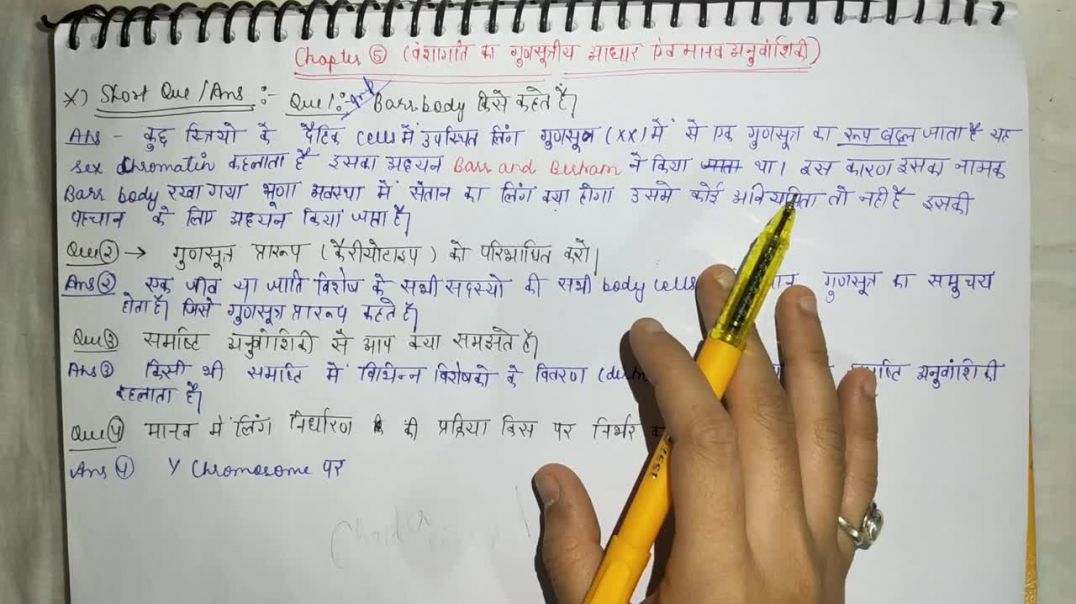 Chapter ⑤ (वंशागति का गुणसूत्रीय आधार एंव मानव अनुवांशिकी)
*) Short Que/Ans :- Que/:- Barr body किसे कहते है।
Ans - कुछ स्त्रियो के दैहिक cells में उपस्थित लिंग गुणसूत्र (XX) में से एक गुणसूत्र का रूप बदल जाता है यह
sex chromatin कहलाता है इसका अध्ययन Barr and Burham ने किया था। इस कारण इसका नामक
Barr body रखा गया भ्रूण अवस्था में संतान का लिंग क्या होगा उसमे कोई अनियमिता तो नही है इसकी
पहचान के लिए अध्ययन किया जाता है।
Que② → गुणसूत्र प्रारूप (कैरीयोटाइप) को परिभाषित करो।
Ans② एक जीव या जाति विशेष के सभी सदस्यो की सभी body cells गुणसूत्र का समुचय
होता है। जिसे गुणसूत्र प्रारूप कहते है।
Que③ समष्टि अनुवांशिकी से आप क्या समझते है।
Ans③ किसी भी समष्टि में विभिन्न विशेषको के वितरण समष्टि अनुवांशिकी
कहलाता है।
Que④ मानव में लिंग निर्धारण की प्रक्रिया किस पर निर्भर
Ans④ Y Chromosome पर